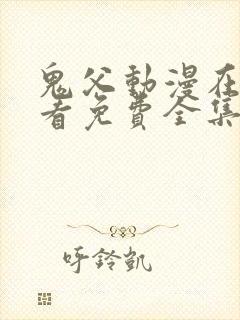 鬼父動漫在
看免費全集
吁鈴凱